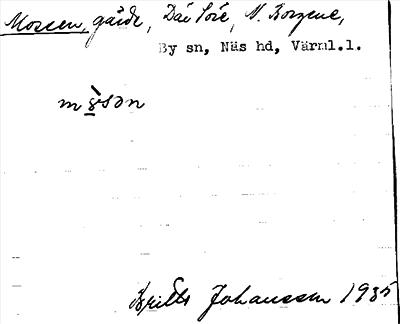 Mossen, gärde, Där Söre, N. Borgene,
By sn, Näs hd, Värml.l.
m ò̲sən
Britta Johansson 1935